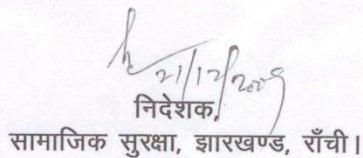 21/12/2009
निदेशक,
सामाजिक सुरक्षा, झारखण्ड, राँची।